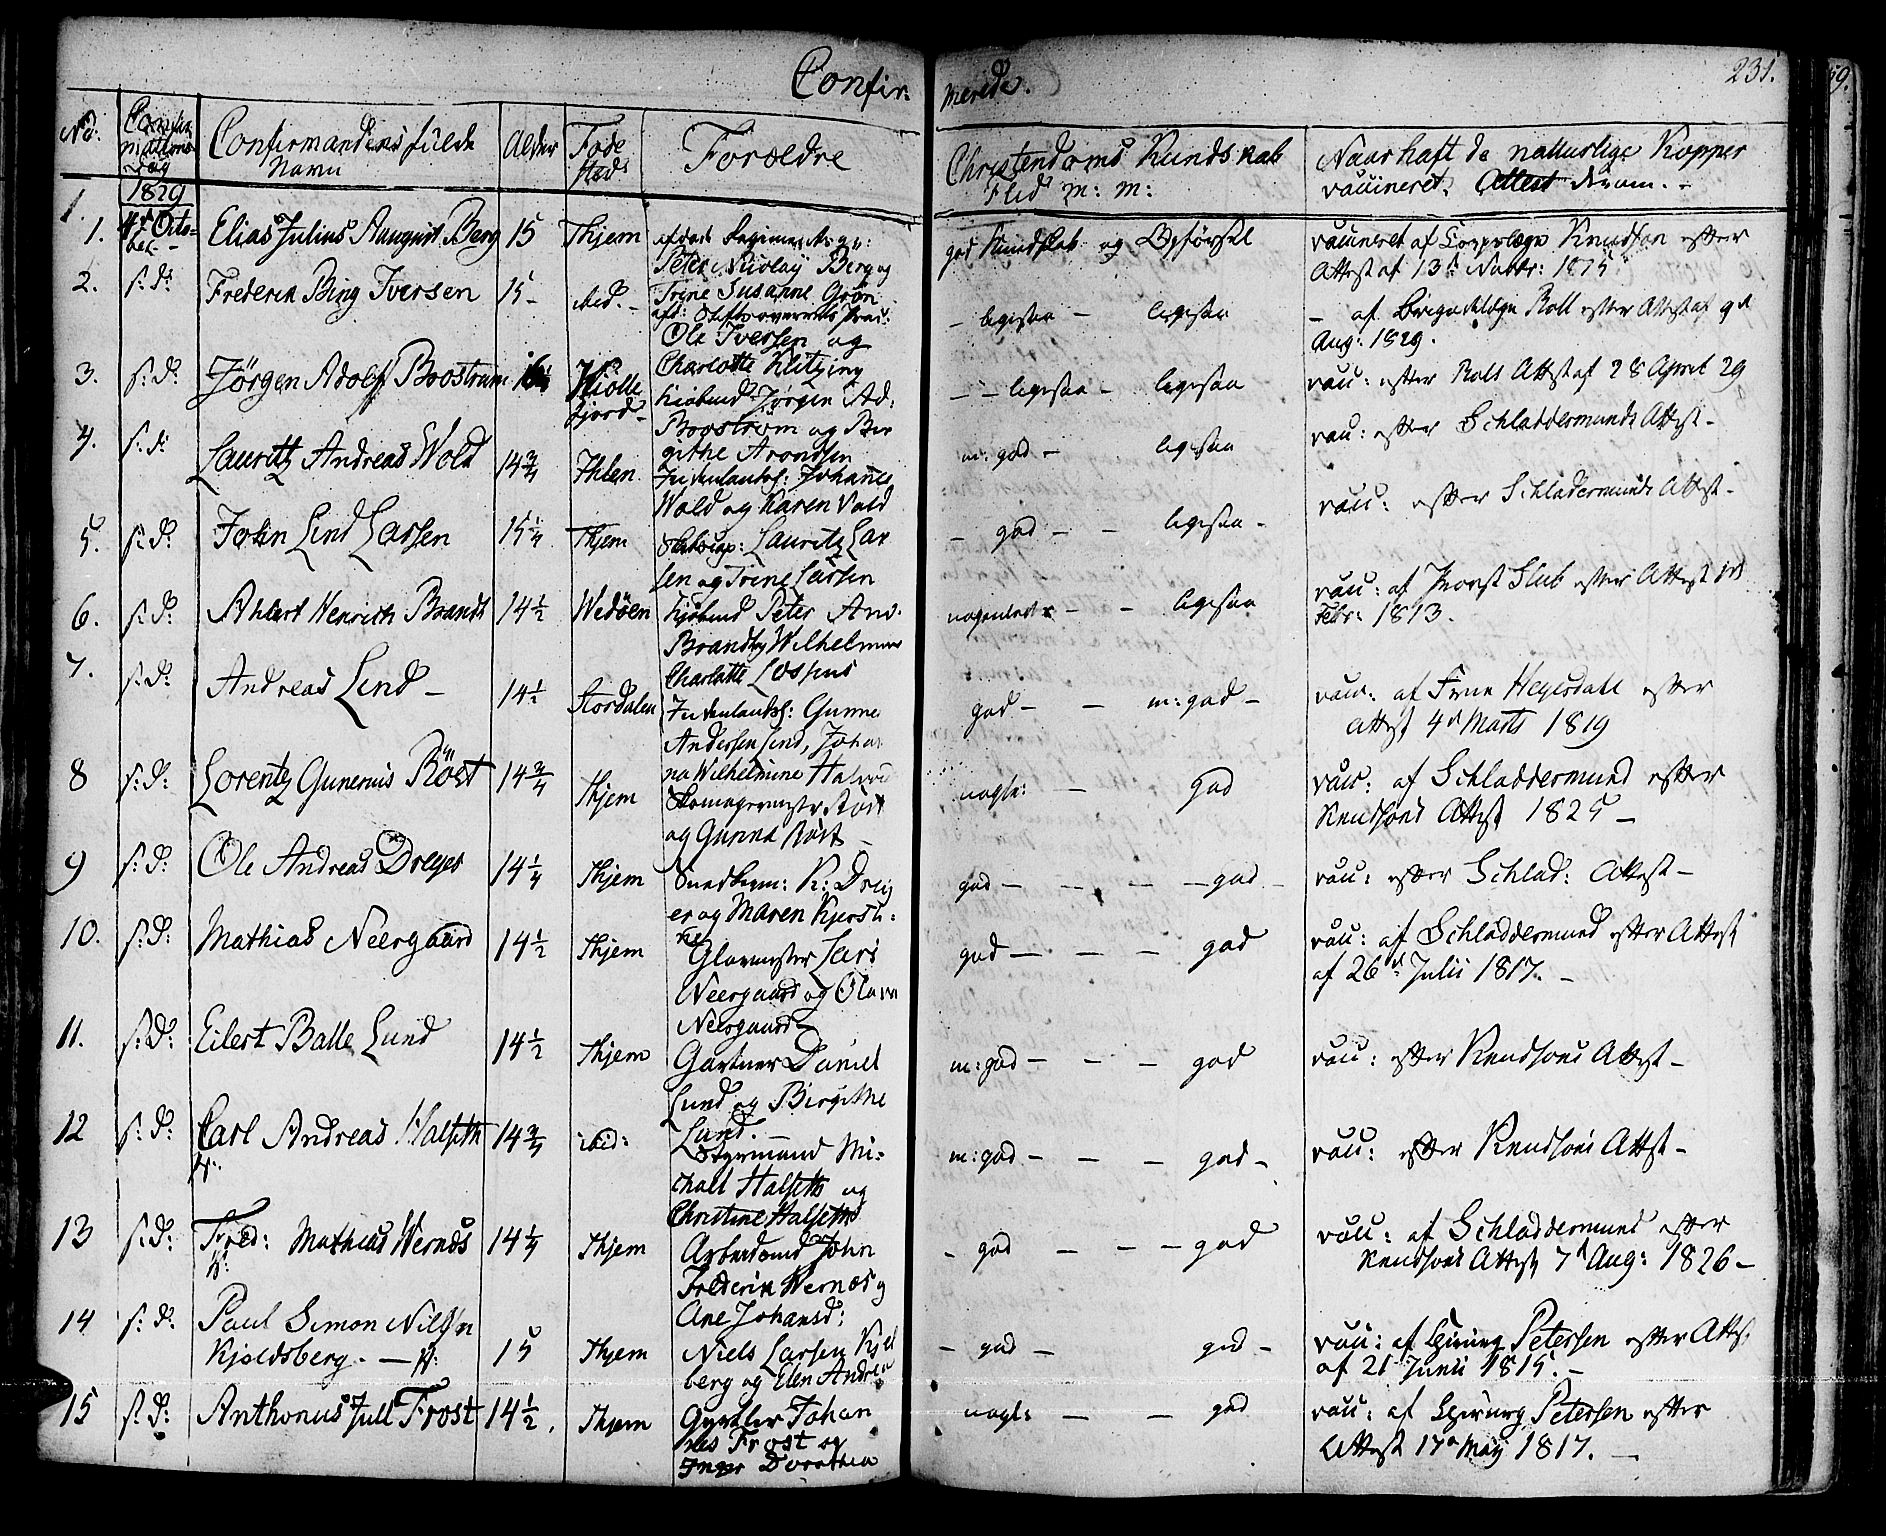 Confir-
merede.
231.
No.
Confir
mations
Dag
Confirmandens fulde
Navn
Alder
Føde
Sted
Forældre
Christendoms Kundskab
Flid m: m:
Naar haft de naturlige Kopper
vaccineret. Attest derom. -
1829
1. 4d Octo-
ber - Elias Julius August Berg 15 Thjem
Regiments
Peter Nicolay Berg og
Trine Susanne Grøn
god Kundskab og Opførsel
vaccineret af Knudson efter
Attest af 13d Novbr: 1815
2. s: d: Frederik Bing Iversen 15 - ibid. -
Ole Iversen og
Charlotte Klitzing
- ligesaa - ligesaa
- af Brigadelæge Roll efter Attest af 9d
Aug: 1829.
3. s: d: Jørgen Adolf Boostrøm
Kiolle
fjord -
Kiøbmd Jørgen Ad.
Boostrøm og Bir
githe Arondsen
- - ligesaa - ligesaa
vac: efter Rolls Attest af 28 April 29
4. s: d: Lauritz Andreas Wold 14 3/4 Ihlen
Johannes
Wold og Karen Wold
m: god - ligesaa
vac: efter Schladdermunds Attest -
5. s: d: John Lind Larsen 15 1/4 Thjem
Lauritz Lar
sen og Trine Larsen
- god - - ligesaa -
vac: efter Schladermunds Attest -
6. s: d: Ahlert Henrich Brandt 14 1/2 Wedøen
Kjøbmd Peter And.
Brandt og Wilhelmine
Charlotte
- - ligesaa
vac: af Provst Stub efter Attest
Febr: 1813.
7. s: d: Andreas Lind - 14 1/2 Stordalen
Gunne
Andersen Lind, Johan
na Wilhelmine
god - - m: god -
vac: af efter
Attest 4d Marts 1819
8 s: d: Lorentz Gunerius Röst 14 3/4 Thjem
Skomagermester Röst
og Gunna Röst -
nogl: - god
vac: af Schladdermund efter
Knudsons Attest 1825 -
9 s: d: Ole Andreas Dreyer 14 1/4 Thjem
Snedkerm: K: Drey
er og Maren Kjersti-
ne
god - - - - god -
vac: efter Schlad: Attest -
10. s: d: Mathias Neergaard 14 1/2 Thjem
Glarmester Lars
Neergaard og Olava
Neergaard
god - - - god
vac: af Schladdermund efter Attest
af 26d Julii 1817. -
11. s: d: Eilert Balle Lund 14 1/2 Thjem
Gartner Daniel
Lund og Birgithe
Lund. -
m: god - - - god
vac: efter Knudsons Attest -
12 s: d: Carl Andreas Halseth 14 3/4 ibid:
Styrmand Mi-
chall Halseth og
Christine Halseth
m: god - - - god -
vac: efter Knudsons Attest -
13 s: d: Fred: Mathias Wernes 14 1/4 Thjem
Arbeidsmd John
Frederik Wernes og
Ane Johansd:
- god - - - god
vac: af Schladdermund efter
Knudsons Attest 7d Aug: 1826 -
14 s: d: Paul Simon Nilsen
Kjeldsberg. - 15 Thjem
Niels Larsen Kjel
berg og Elen Andrea
- god - god -
vac: af Chirurg Petersen efter Attest
af 21 Junii 1815. -
15 s: d: Anthonus Jull Frost 14 1/2. Thjem
Gjørtler Johan
nes Frost og
Inger Dorothea
nogl: - - god
vac: af Chirurg Petersen efter
Attest 17d May 1817. -